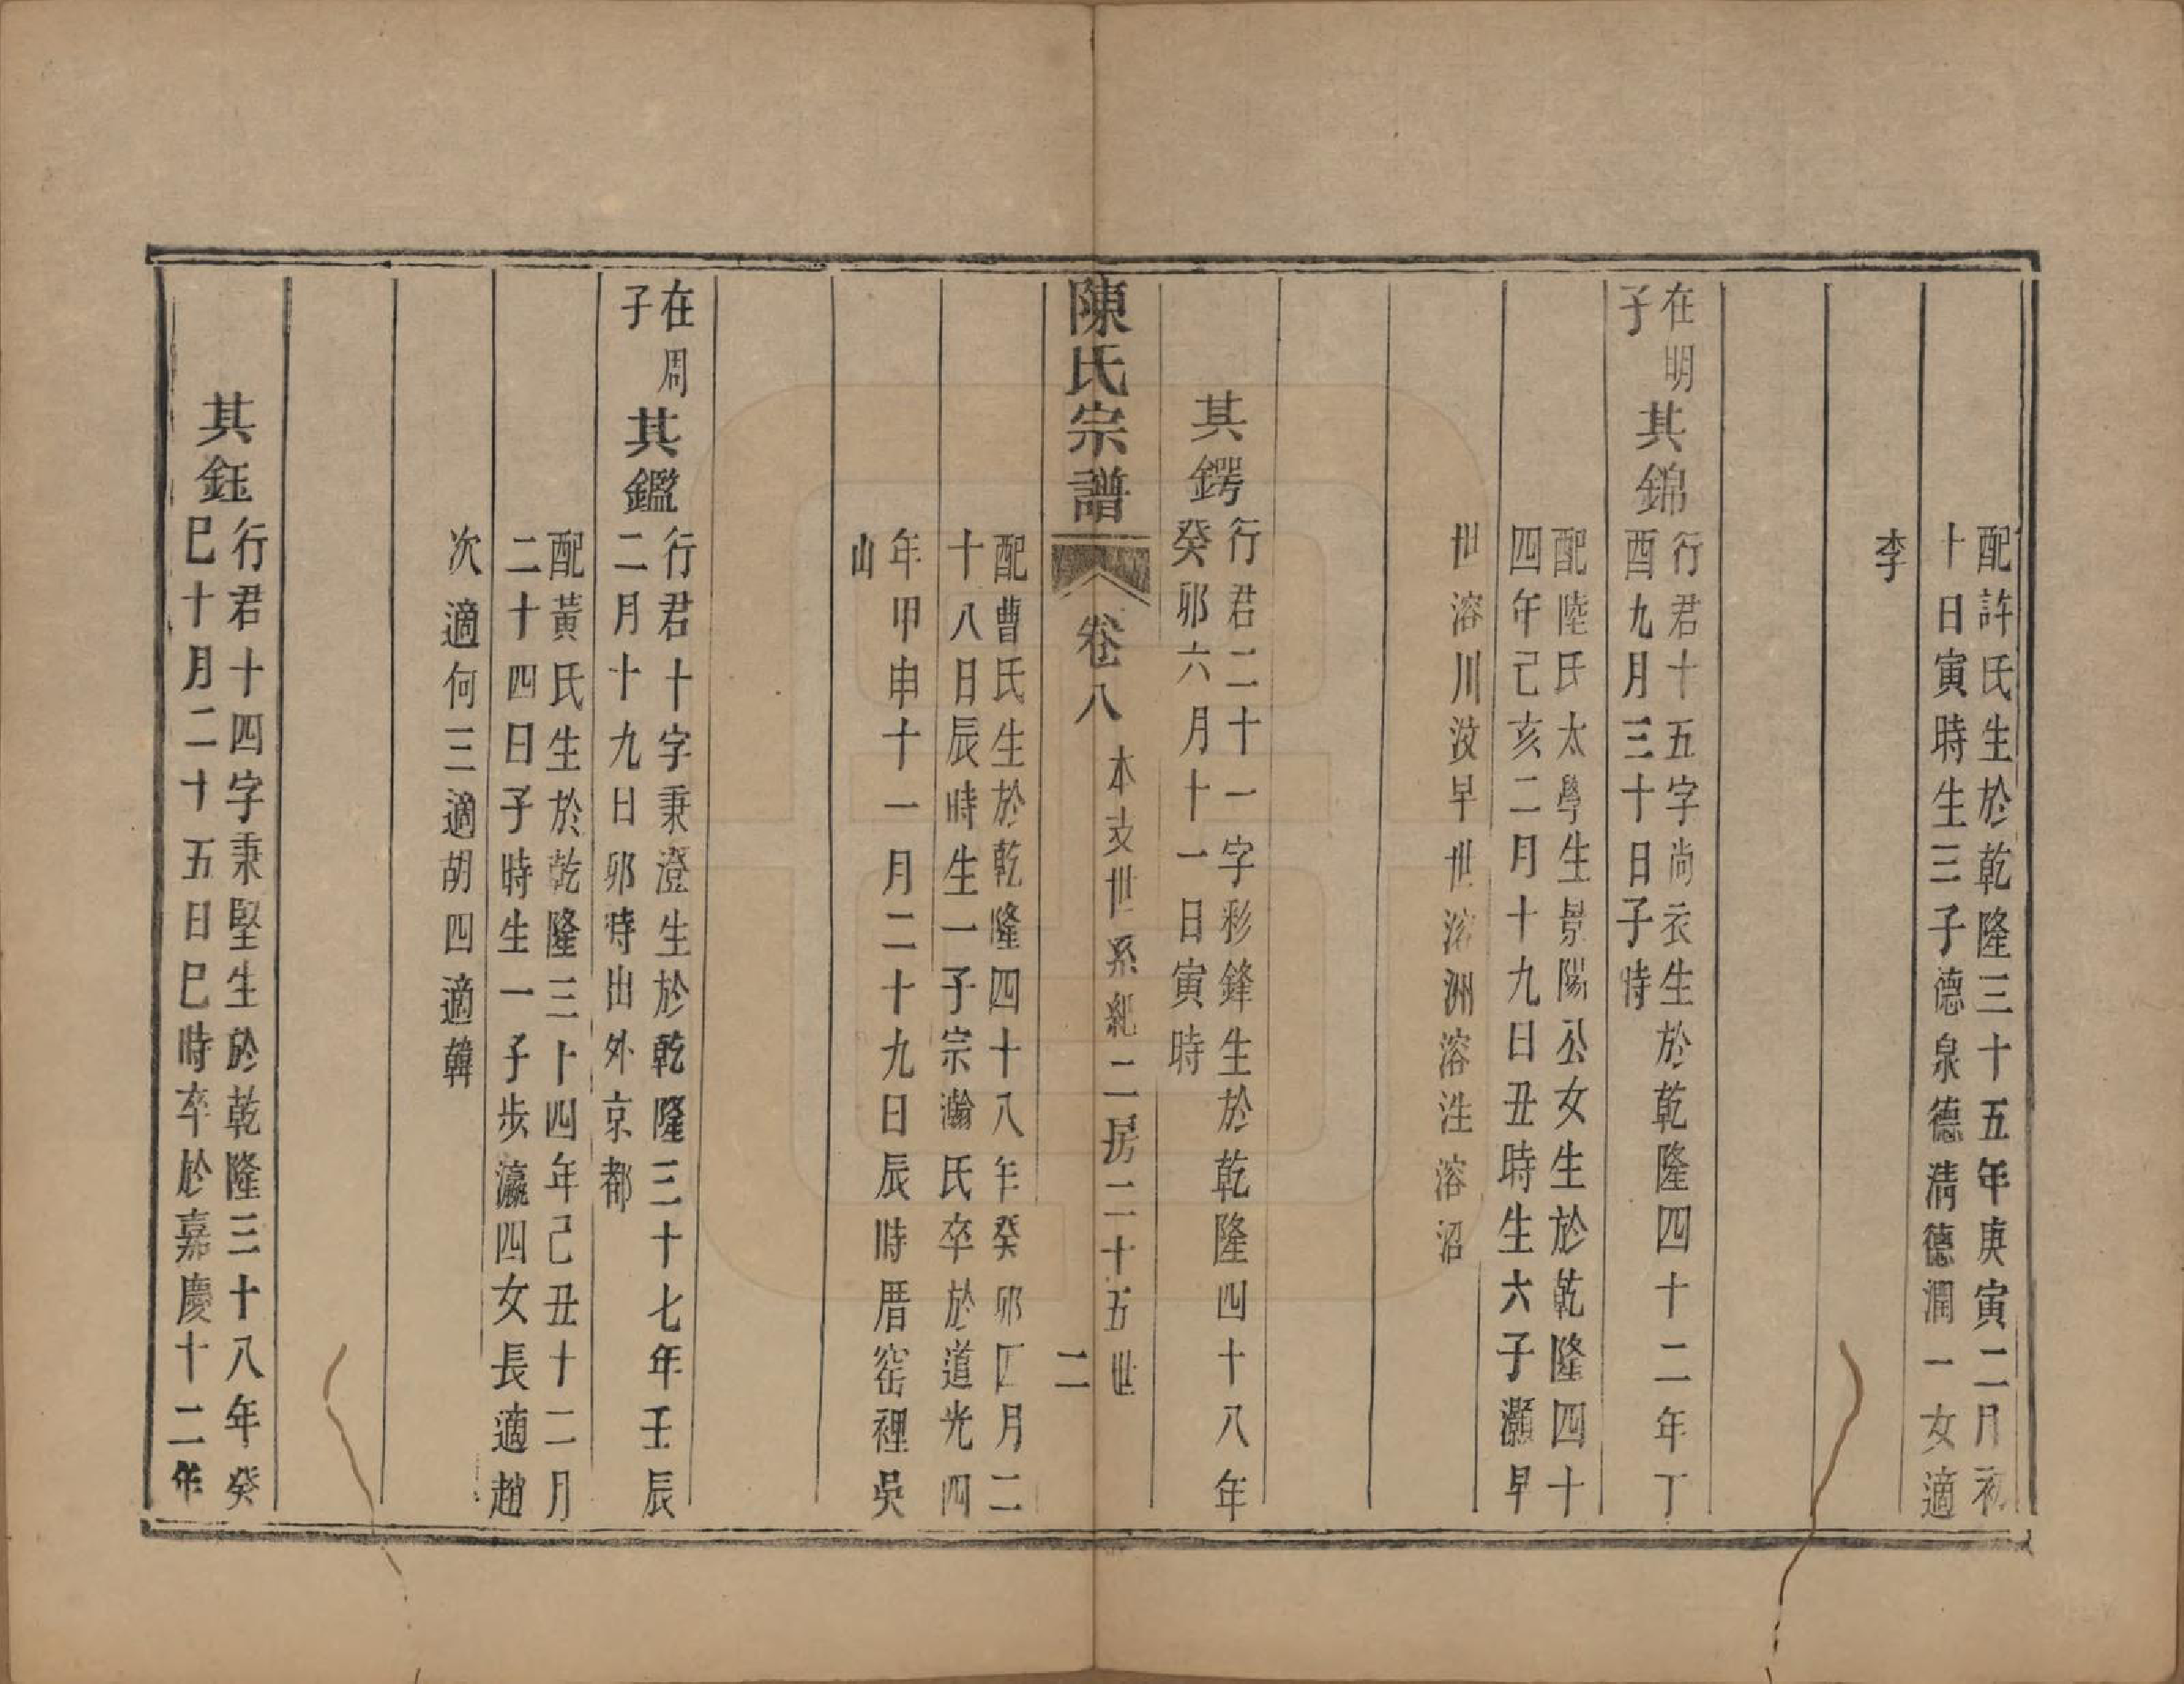 配許氏生於乾隆三十五年庚寅二月初
十日寅時生三子德泉德清德潤一女適
李
在明
子
其錦
行君十五字尚衣生於乾隆四十二年丁
酉九月三十日子時
配陸氏太學生景陽公女生於乾隆四十
四年己亥二月十九日丑時生六子灝早
世溶川汶早世溶洲溶泩溶沼
其鍔
行君二十一字彩鋒生於乾隆四十八年
癸卯六月十一日寅時
陳氏宗譜
卷八
本支世系紀二房二十五世
二
配曹氏生於乾隆四十八年癸卯四月二
十八日辰時生一子宗瀚氏卒於道光四
年甲申十一月二十九日辰時厝窑裡吳
山
在周
子
其鑑
行君十字秉澄生於乾隆三十七年壬辰
二月十九日卯時出外京都
配黃氏生於乾隆三十四年己丑十二月
二十四日子時生一子步瀛四女長適趙
次適何三適胡四適韓
其鈺
行君十四字秉堅生於乾隆三十八年癸
巳十月二十五日巳時卒於嘉慶十二年